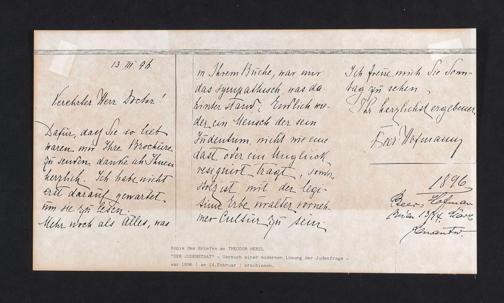 13. III 96
Verehrter Herr Doctor!
Dafür, dass Sie so lieb
waren mir Ihre Brochüre
zu senden, danke ich Ihnen
herzlich. Ich habe nicht
erst darauf gewartet
um sie zu lesen.
Mehr noch als Alles, was
in Ihrem Buche, war mir
das sympathisch, was da-
hinter stand. Endlich wie-
der ein Mensch der sein
Judentum nicht wie eine
Last oder ein Unglück
resignirt trägt, sondern
stolz ist mit der legi-
time Erbe uralter vorneh-
mer Cultur zu sein
Ich freue mich Sie Sonn-
tag zu sehen.
Ihr herzlichst ergebener
1896
Beer-Hofmann
Kopie des Briefes an THEODOR HERZL
"DER JUDENSTAAT" - Versuch einer modernen Lösung der Judenfrage -
war 1896 ( am 14.Februar ) erschienen.